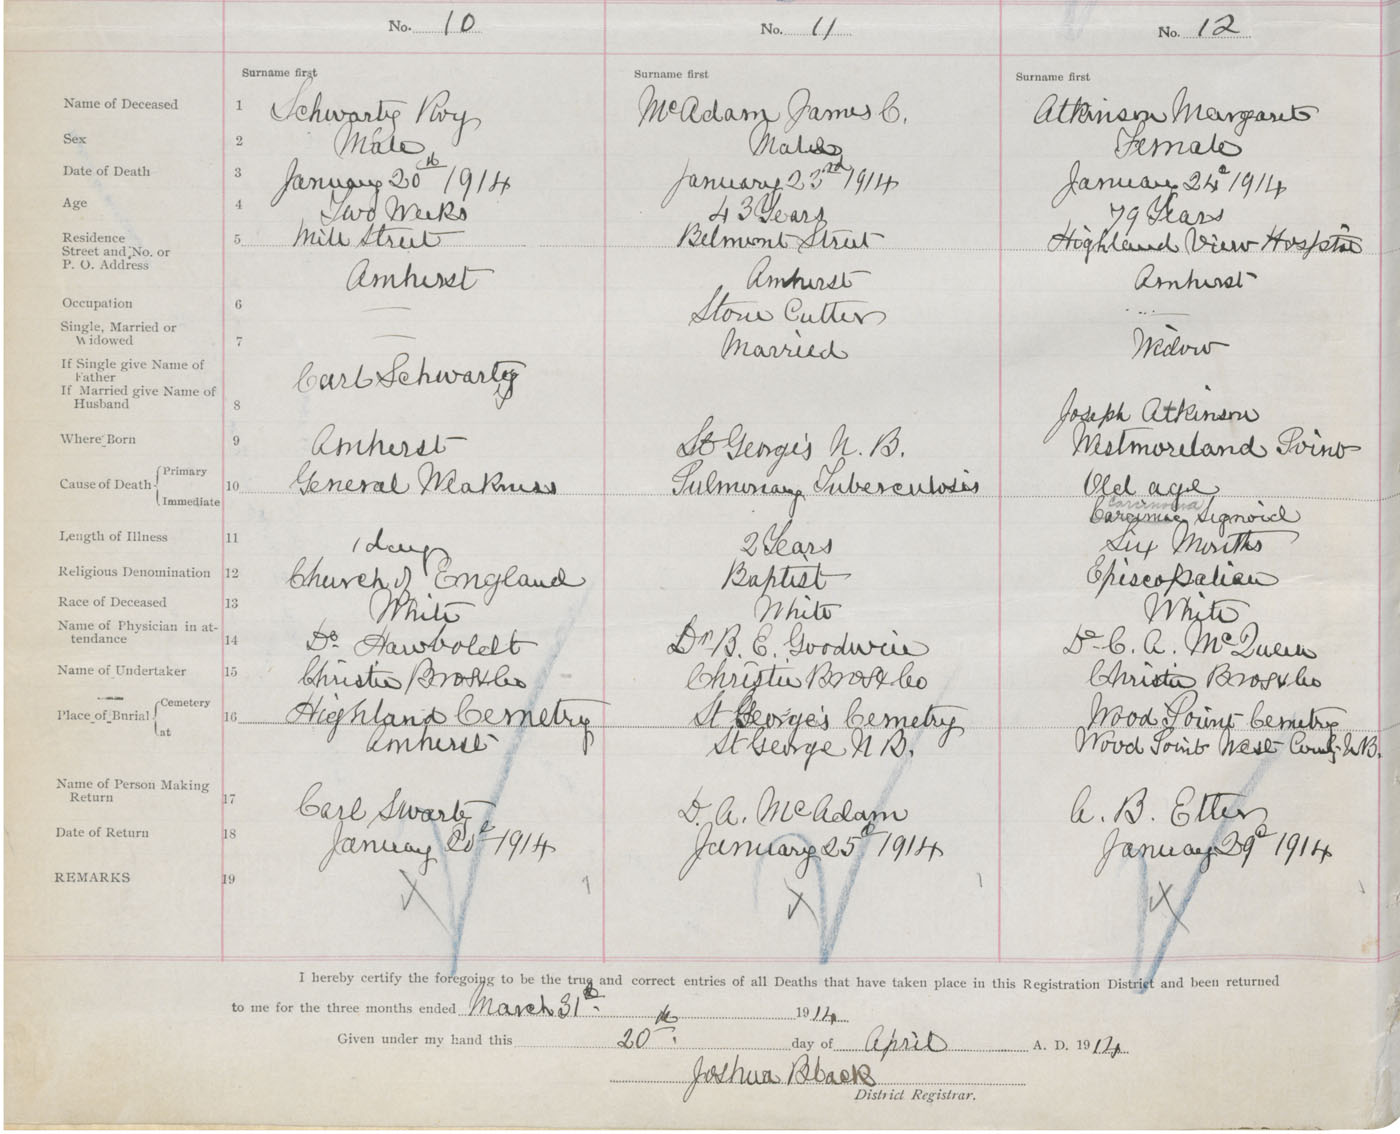 No. 10 No. 11 No. 12
Surname first Surname first Surname first
Name of Deceased 1 Schwartz Roy McAdam James C. Atkinson Margaret
Sex 2 Male Male Female
Date of Death 3 January 20th 1914 January 23rd 1914 January 24th 1914
Age 4 Two Weeks 43 Years 79 Years
Residence
Street and No. or 5 Mill Street Belmont Street Highland View Hospital
P. O. Address Amherst Amherst Amherst
Occupation 6 — Stone Cutter
Single, Married or
Widowed 7 — Married Widow
If Single give Name of
Father Carl Schwartz
If Married give Name of
Husband 8 Joseph Atkinson
Where Born 9 Amherst St George's N. B. Westmoreland Point
Cause of Death Primary 10 General Weakness Pulmonary Tuberculosis Old age
Immediate carcinoma Sigmoid
Length of Illness 11 1 day 2 Years Six Months
Religious Denomination 12 Church of England Baptist Episcopalian
Race of Deceased 13 White White White
Name of Physician in at-
tendance 14 Dr Hawboldt Dr B. E. Goodwin Dr C. A. McQueen
Name of Undertaker 15 Christie Bros & Co Christie Bros & Co Christie Bros & Co
Place of Burial Cemetery 16 Highland Cemetry St George's Cemetry Wood Point Cemetry
at Amherst St George N B. Wood Point West County N B.
Name of Person Making
Return 17 Carl Swartz D. A. McAdam A. B. Etter
Date of Return 18 January 20th 1914 January 25th 1914 January 29th 1914
REMARKS 19 X 1 X 1 X
I hereby certify the foregoing to be the true and correct entries of all Deaths that have taken place in this Registration District and been returned
to me for the three months ended March 31st. 1914
Given under my hand this 20th day of April A. D. 1914
Joshua Black
District Registrar.